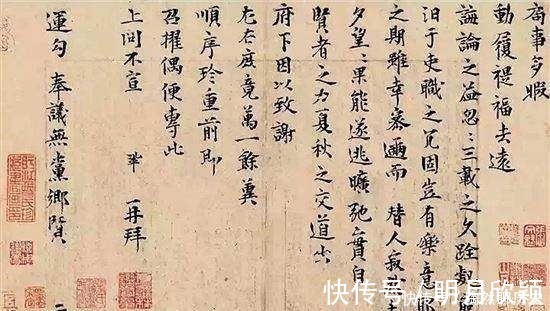 局事多暇
動履禔福去遠
誨論之益忽〻三載之久跧
汩于吏職之冗固豈有樂意
之期雖幸密邇而替人寂
夕望〻果能遂逃曠弛實自
賢者之力夏秋之交道出
府下因以致謝
左右庶竟萬一餘冀
順序珍重前即
召擢偶便專此
上問不宣 鞏再拜
運勾奉議無黨鄉賢 二
快传号／明月欣颖